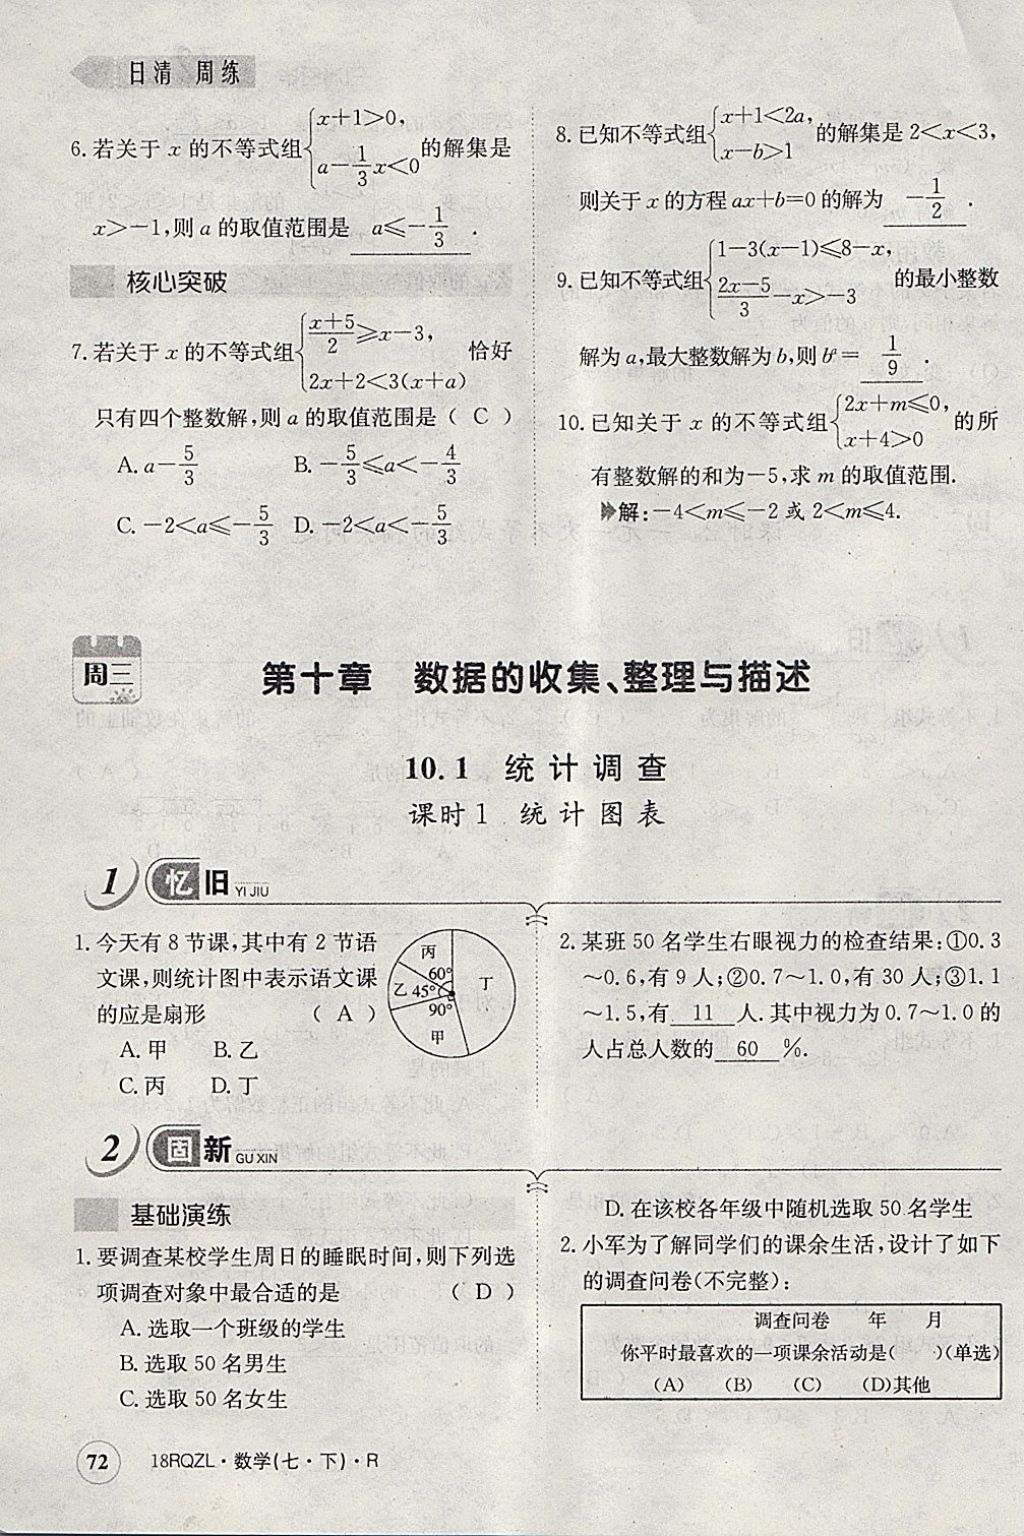 日清 周练
6. 若关于 x 的不等式组{x+1>0, a-1/3x<0 的解集是
x>-1,则 a 的取值范围是 a≤-1/3 .
核心突破
7. 若关于 x 的不等式组{x+5/2≥x-3, 2x+2<3(x+a) 恰好
只有四个整数解,则 a 的取值范围是 ( C )
A. a-5/3 B. -5/3≤a<-4/3
C. -2<a≤-5/3 D. -2<a<-5/3
8. 已知不等式组{x+1<2a, x-b>1 的解集是 2<x<3,
则关于 x 的方程 ax+b=0 的解为 -1/2 .
9. 已知不等式组{1-3(x-1)≤8-x, 2x-5/3-x>-3 的最小整数
解为 a,最大整数解为 b,则 bᵃ= 1/9 .
10. 已知关于 x 的不等式组{2x+m≤0, x+4>0 的所
有整数解的和为-5,求 m 的取值范围.
解:-4<m≤-2 或 2<m≤4.
周三
第十章 数据的收集、整理与描述
10.1 统计调查
课时1 统计图表
1 忆旧 YI JIU
1. 今天有 8 节课,其中有 2 节语
文课,则统计图中表示语文课
的应是扇形 ( A )
A. 甲 B. 乙
C. 丙 D. 丁
丙
60°
丁
乙 45°
90°
甲
2. 某班 50 名学生右眼视力的检查结果:①0.3
~0.6,有 9 人;②0.7~1.0,有 30 人;③1.1
~1.5,有 11 人.其中视力为 0.7~1.0 的
人占总人数的 60 %.
2 固新 GU XIN
基础演练
1. 要调查某校学生周日的睡眠时间,则下列选
项调查对象中最合适的是 ( D )
A. 选取一个班级的学生
B. 选取 50 名男生
C. 选取 50 名女生
D. 在该校各年级中随机选取 50 名学生
2. 小军为了解同学们的课余生活,设计了如下
的调查问卷(不完整):
调查问卷 年 月
你平时最喜欢的一项课余活动是( )(单选)
(A) (B) (C) (D)其他
72 18RQZL·数学(七·下)·R